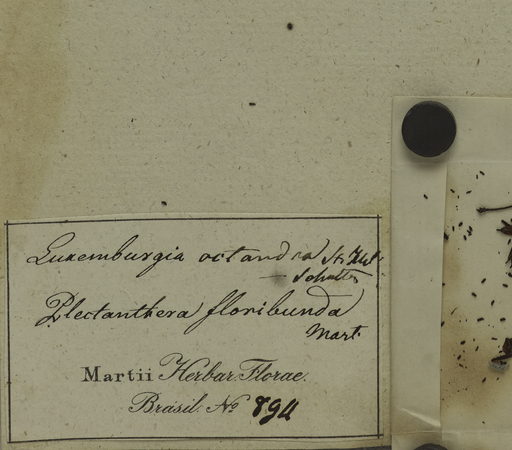 Luxemburgia octandra St. Hil.
Plectanthera floribunda
Mart.
Martii Herbar. Florae.
Brasil. No 894